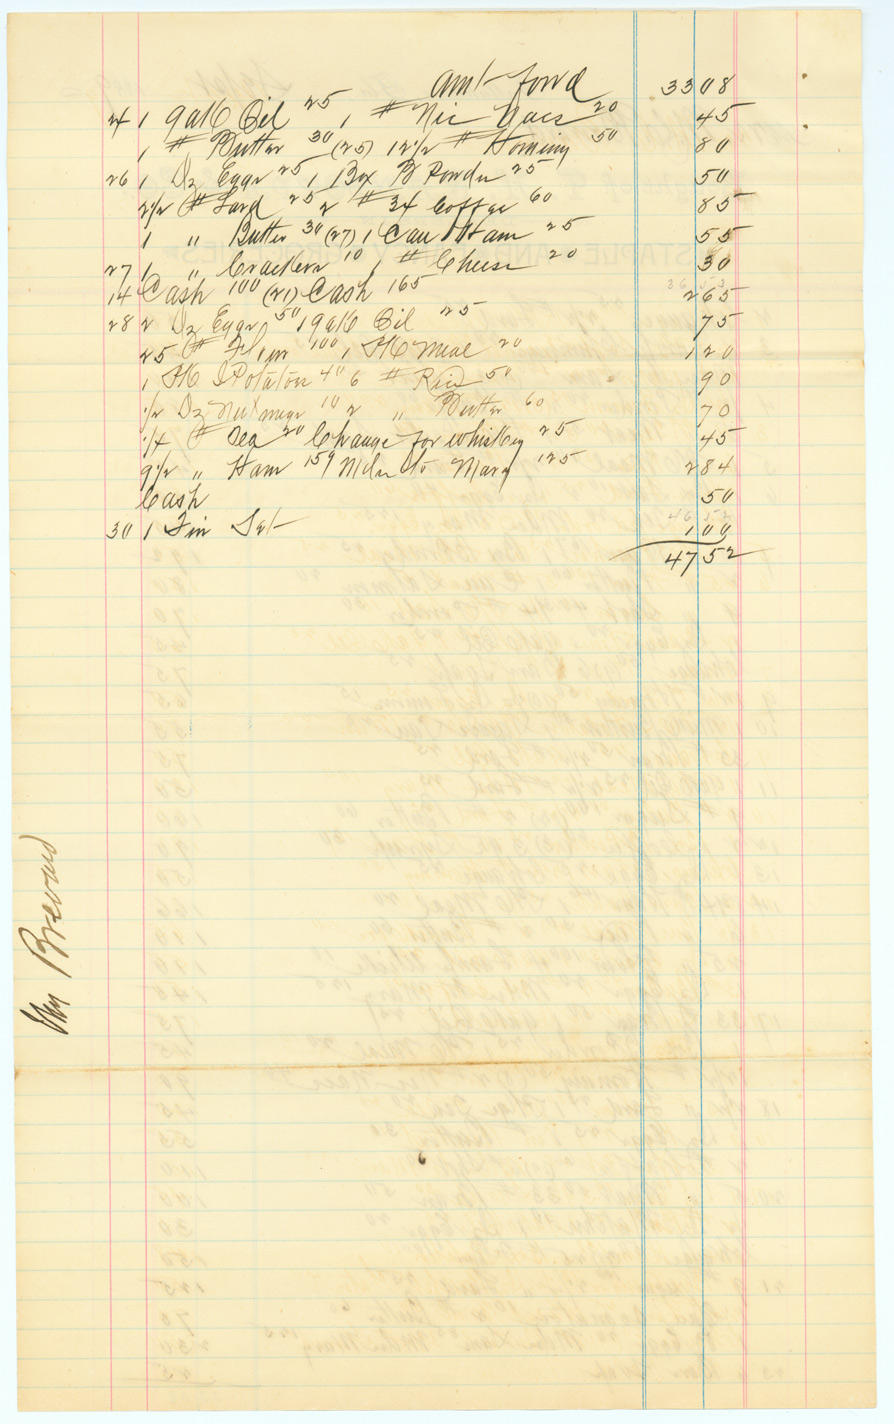 Amt Forwd 3308
24 1 gal K Oil 25 1 # Nic Nacs 20 45
1 # Butter 30 (25) 12 1/2 # Hominy 50 80
26 1 Dz Eggs 25 1 Box B Powder 25 50
2 1/2 # Lard 25 2 # 34 Coffee 60 85
1 " Butter 30 (27) 1 Can Ham 25 55
27 1 " Crackers 10 1 # Cheese 20 30
14 Cash 100 (21) Cash 165 265
28 2 Dz Eggs 50 1 gal K Oil 25 75
25 # Flour 100 1 PK Meal 20 120
1 PK I Potatoes 40 6 # Rice 50 90
1/2 Dz Nutmegs 10 2 " Butter 60 70
1/4 # Tea 20 Change for whiskey 25 45
9 1/2 " Ham 159 Mdse to Mary 125 284
Cash 50
4652
30 1 Tin Set 100
4752
Brevard